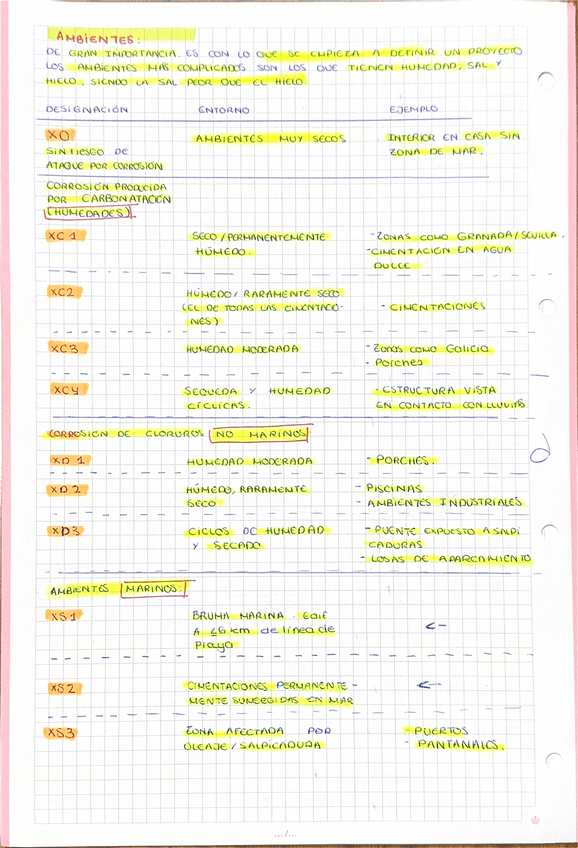 AMBIENTES:
DE GRAN IMPORTANCIA. ES CON LO QUE SE EMPIEZA A DEFINIR UN PROYECTO
LOS AMBIENTES MÁS COMPLICADOS SON LOS QUE TIENEN HUMEDAD, SAL Y
HIELO. SIENDO LA SAL PEOR QUE EL HIELO.
DESIGNACIÓN ENTORNO EJEMPLO
XO AMBIENTES MUY SECOS INTERIOR EN CASA SIN
SIN RIESGO DE ZONA DE MAR.
ATAQUE POR CORROSIÓN
CORROSIÓN PRODUCIDA
POR CARBONATACIÓN
(HUMEDADES)
XC1 SECO/PERMANENTEMENTE - ZONAS COMO GRANADA/SEVILLA.
HÚMEDO. - CIMENTACIÓN EN AGUA
DULCE
XC2 HÚMEDO/RARAMENTE SECO
(EL DE TODAS LAS CIMENTACIO- - CIMENTACIONES
NES)
XC3 HUMEDAD MODERADA - Zonas como Galicia
- Porches
XC4 SEQUEDA Y HUMEDAD - ESTRUCTURA VISTA
CÍCLICAS. EN CONTACTO CON LLUVIAS
CORROSIÓN DE CLORUROS NO MARINOS
XD1 HUMEDAD MODERADA - PORCHES.
XD2 HÚMEDO, RARAMENTE - PISCINAS
SECO - AMBIENTES INDUSTRIALES
XD3 CICLOS DE HUMEDAD - PUENTE EXPUESTO A SALPI
Y SECADO CADURAS
- LOSAS DE APARCAMIENTO
AMBIENTES MARINOS:
XS1 BRUMA MARINA. Edif
A ≤5 km de línea de ←
Playa
XS2 CIMENTACIONES PERMANENTE- ←
MENTE SUMERGIDAS EN MAR
XS3 ZONA AFECTADA POR - PUERTOS
OLEAJE/SALPICADURA - PANTANALES.
.../...